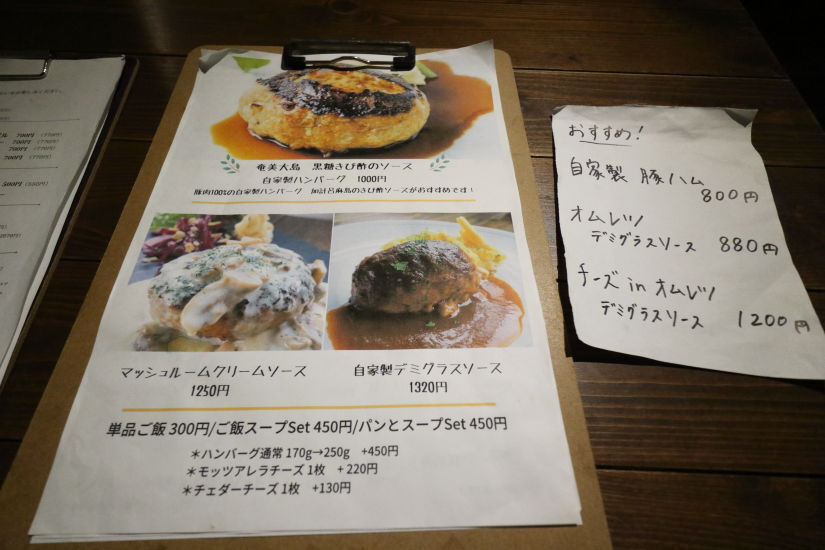 700円 (770円)
700円 (770円)
700円 (770円)
500円 (550円)
奄美大島 黒糖きび酢のソース
自家製ハンバーグ 1000円
豚肉100%の自家製ハンバーグ 加計呂麻島のきび酢ソースがおすすめです！
マッシュルームクリームソース
1250円
自家製デミグラスソース
1320円
単品ご飯 300円/ご飯スープSet 450円/パンとスープSet 450円
＊ハンバーグ通常 170g→250g +450円
＊モッツアレラチーズ 1枚 + 220円
＊チェダーチーズ 1枚 +130円
おすすめ!
自家製 豚ハム
800円
オムレツ
デミグラスソース 880円
チーズ in オムレツ
デミグラスソース 1200円